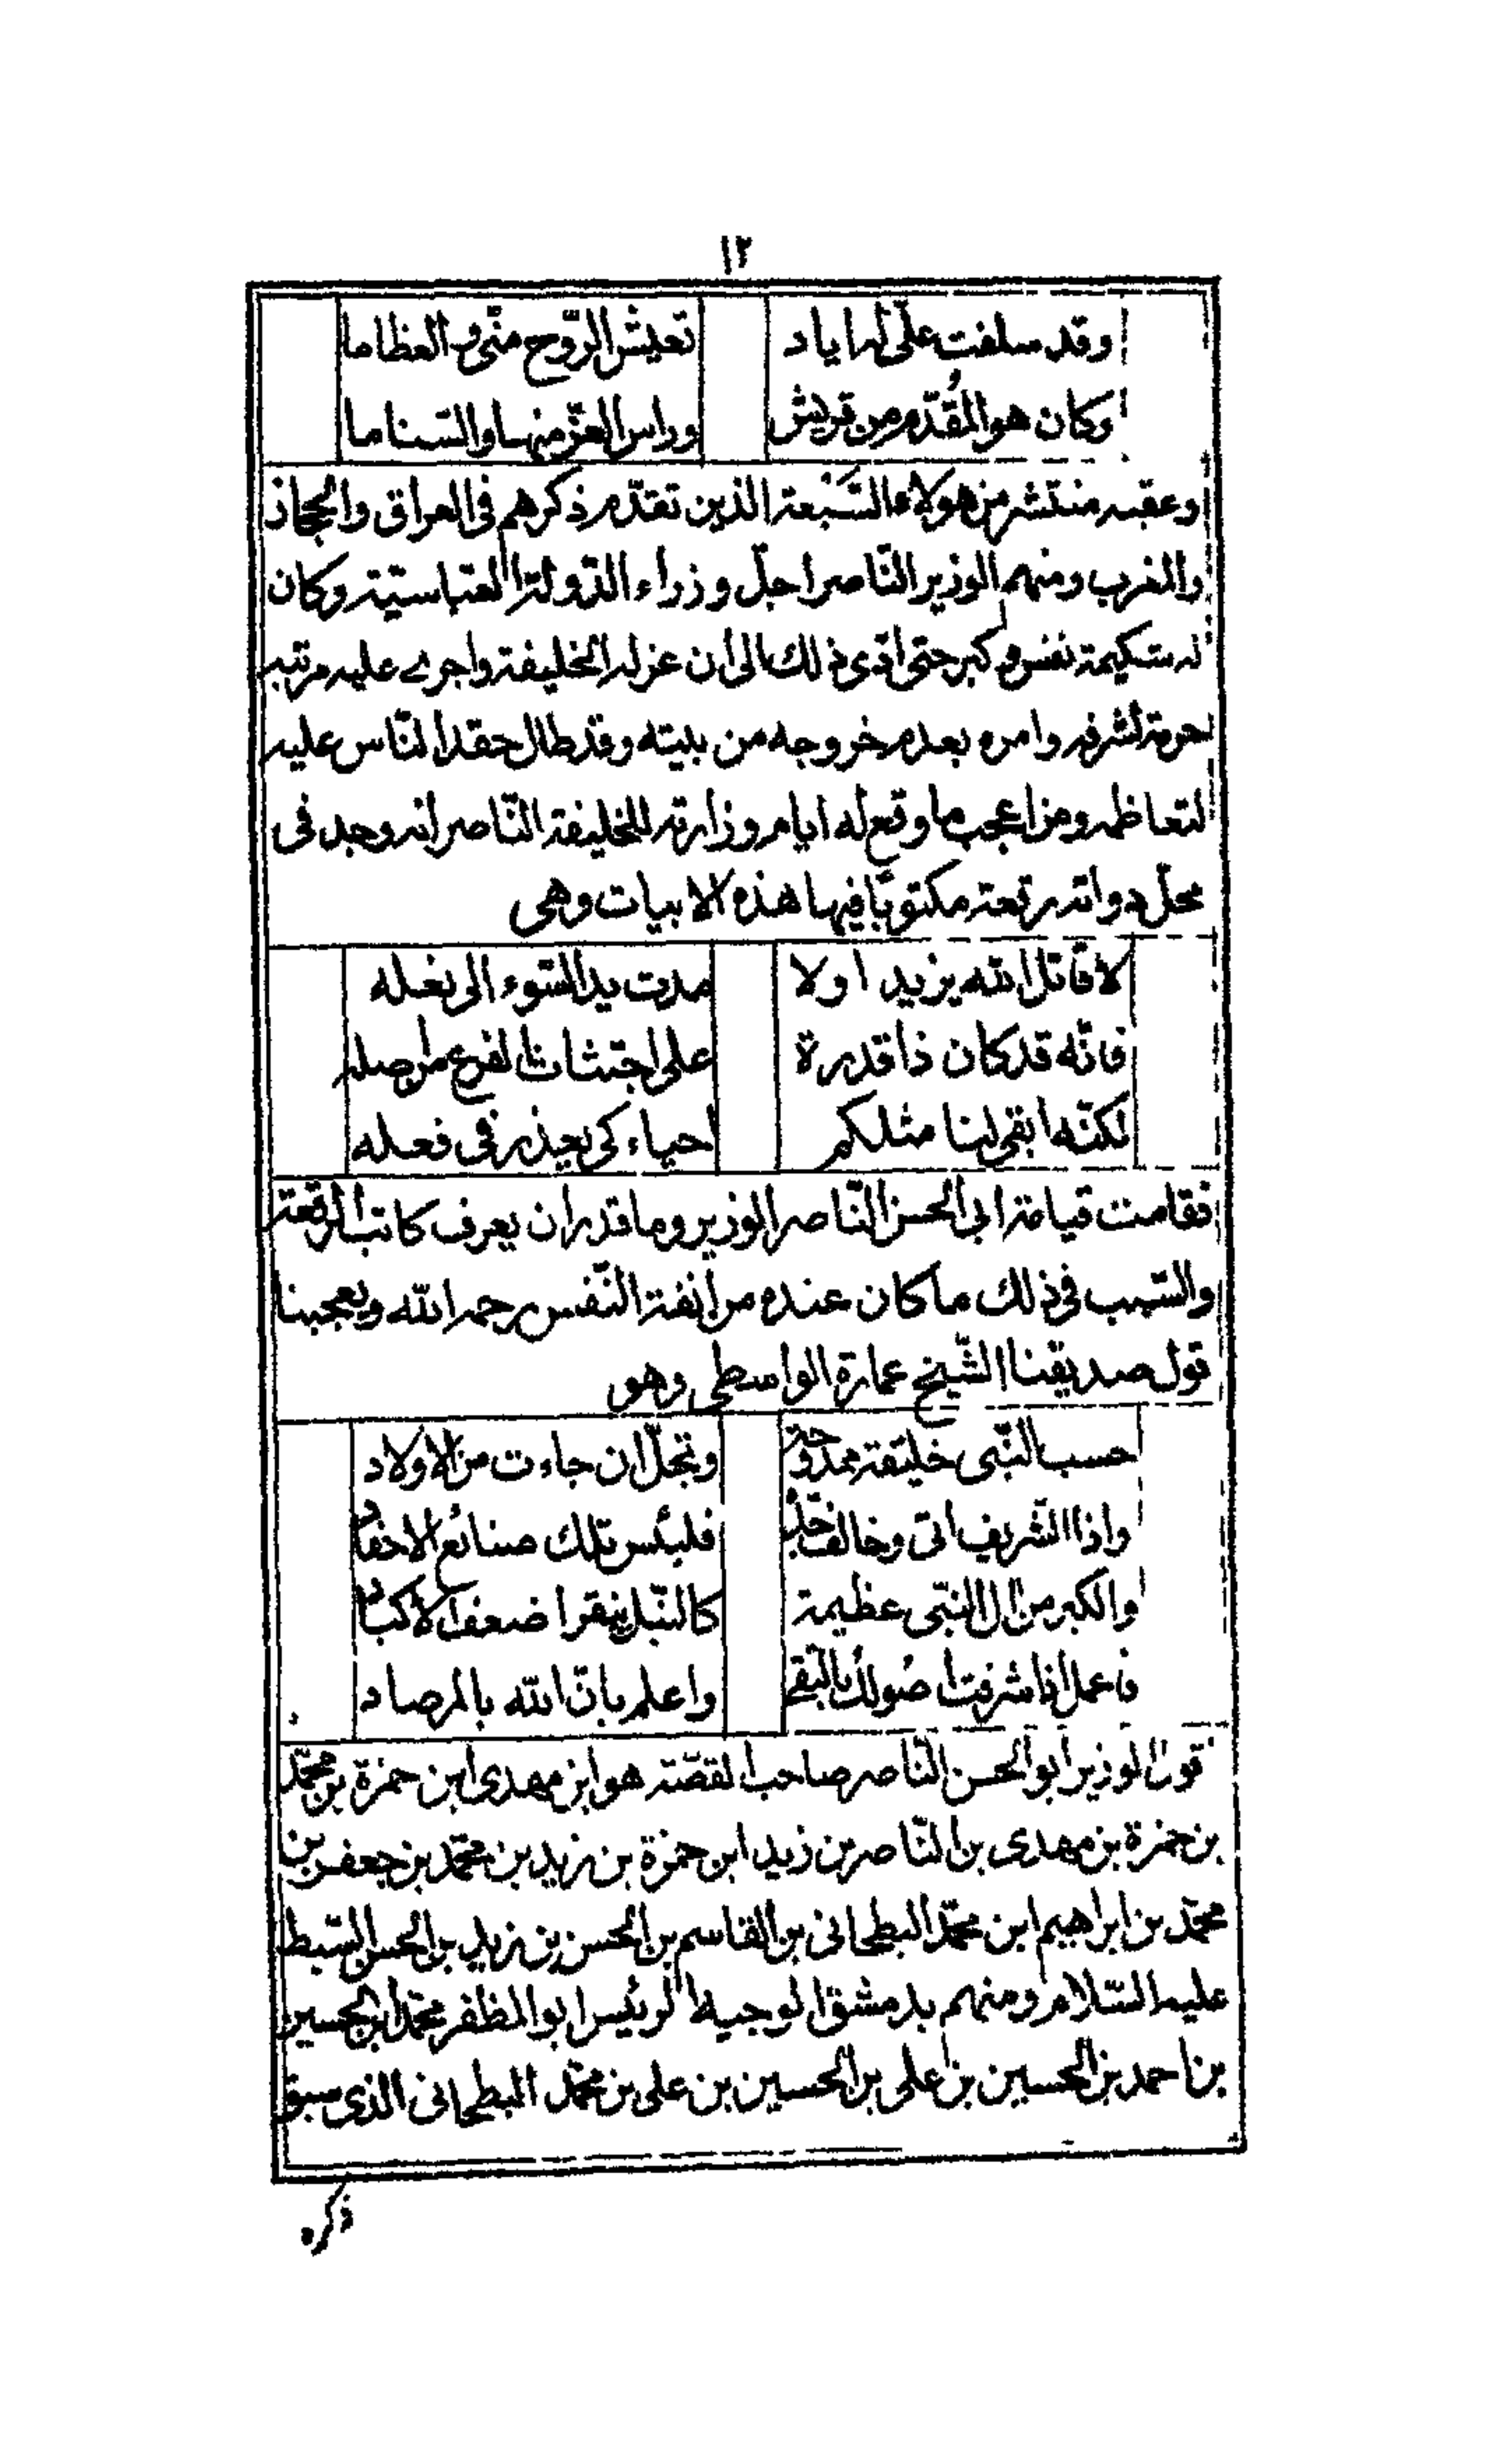 ١٢
وقد سلفت علّى له اياد تعيش الرّوح منّى والعظاما
وكان هو المُقدّم من قريش وراس العزّ منها والسّناما
وعقبه منتشر من هولاء السَّبْعة الذين تقدّم ذكرهم فى العراق والحجاز
والمغرب ومنهم الوزير النّاصر اجلّ وزراء الدّولة العبّاسيّة وكان
له شكيمة نفس وكبر حتى ادّى ذلك الى ان عزله الخليفة واجرى عليه مرتبه
حرمة لشرفه وامره بعدم خروجه من بيته وقد طال حقد النّاس عليه
لتعاظمه ومن اعجب ما وقع له ايام وزارته للخليفة النّاصر انه وجد فى
محلّ دواته رقعة مكتوبًا فيها هذه الابيات وهى
لا قاتل الله يزيد اولا مدت يد السّوء الى نعله
فانّه قد كان ذا قدرة على اجتثاث الفرع من اصله
لكنّه ابقى لنا مثلكم احياء كى يعذر فى فعله
فقامت قيامة ابى الحسن النّاصر الوزير وما قدر ان يعرف كاتب الرقعة
والسّبب فى ذلك ما كان عنده من انفة النّفس رحمه الله ويعجبنا
قول صديقنا الشّيخ عمارة الواسطى وهو
حسب النّبى خليقة ممدوحة وتجلّ ان جاءت من الاولاد
واذا الشّريف اتى وخالف جدّه فلبئس تلك صنائع الاحفاد
والكبر من ال النبّى عظيمة كالنّبل ينقر اضعف الاكباد
فاعمل اذا شرفت اصُولك بالتّقى واعلم بانّ الله بالمرصاد
قول الوزير ابو الحسن النّاصر صاحب القصّة هو ابن مهدى ابن حمزة بن محمّد
بن حمزة بن مهدى بن النّاصر بن زيد ابن حمزة بن زيد بن محمّد بن جعفر بن
محمّد بن ابراهيم ابن محمّد البطحانى بن القاسم بن الحسن بن زيد بن الحسن السّبط
عليه السّلام ومنهم بدمشق الوجيه الرئيس ابو المظفر محمّد ابن الحسين
بن احمد بن الحسين بن على بن الحسين بن على بن محمّد البطحانى الذى سبق
ذكره